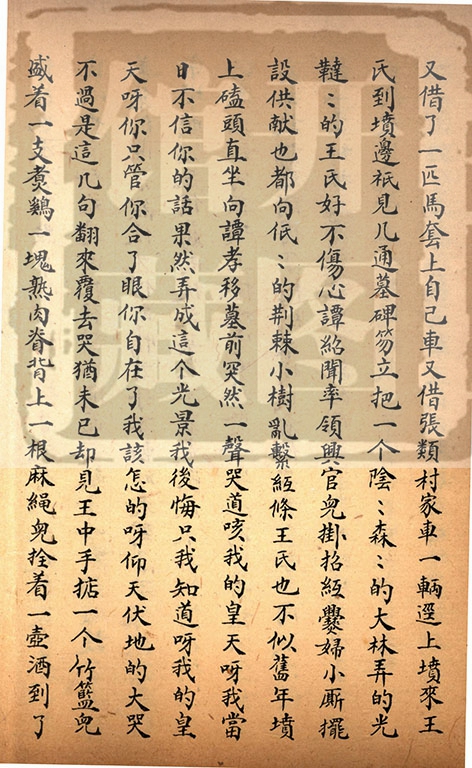 又借了一匹馬套上自己車又借張類村家車一輛逕上墳來王
氏到墳邊祇見几通墓碑笏立把一个陰〻森〻的大林弄的光
韃〻的王氏好不傷心譚紹聞率領興官兒掛招紙爨婦小厮擺
設供献也都向低〻的荆棘小樹亂繫紙條王氏也不似舊年墳
上磕頭直坐向譚孝移墓前突然一聲哭道咳我的皇天呀我當
日不信你的話果然弄成這个光景我後悔只我知道呀我的皇
天呀你只管你合了眼你自在了我該怎的呀仰天伏地的大哭
不過是這几句翻來覆去哭猶未已却見王中手掂一个竹籃兒
盛着一支煮鷄一塊熟肉脊背上一根麻繩兒拴着一壺酒到了